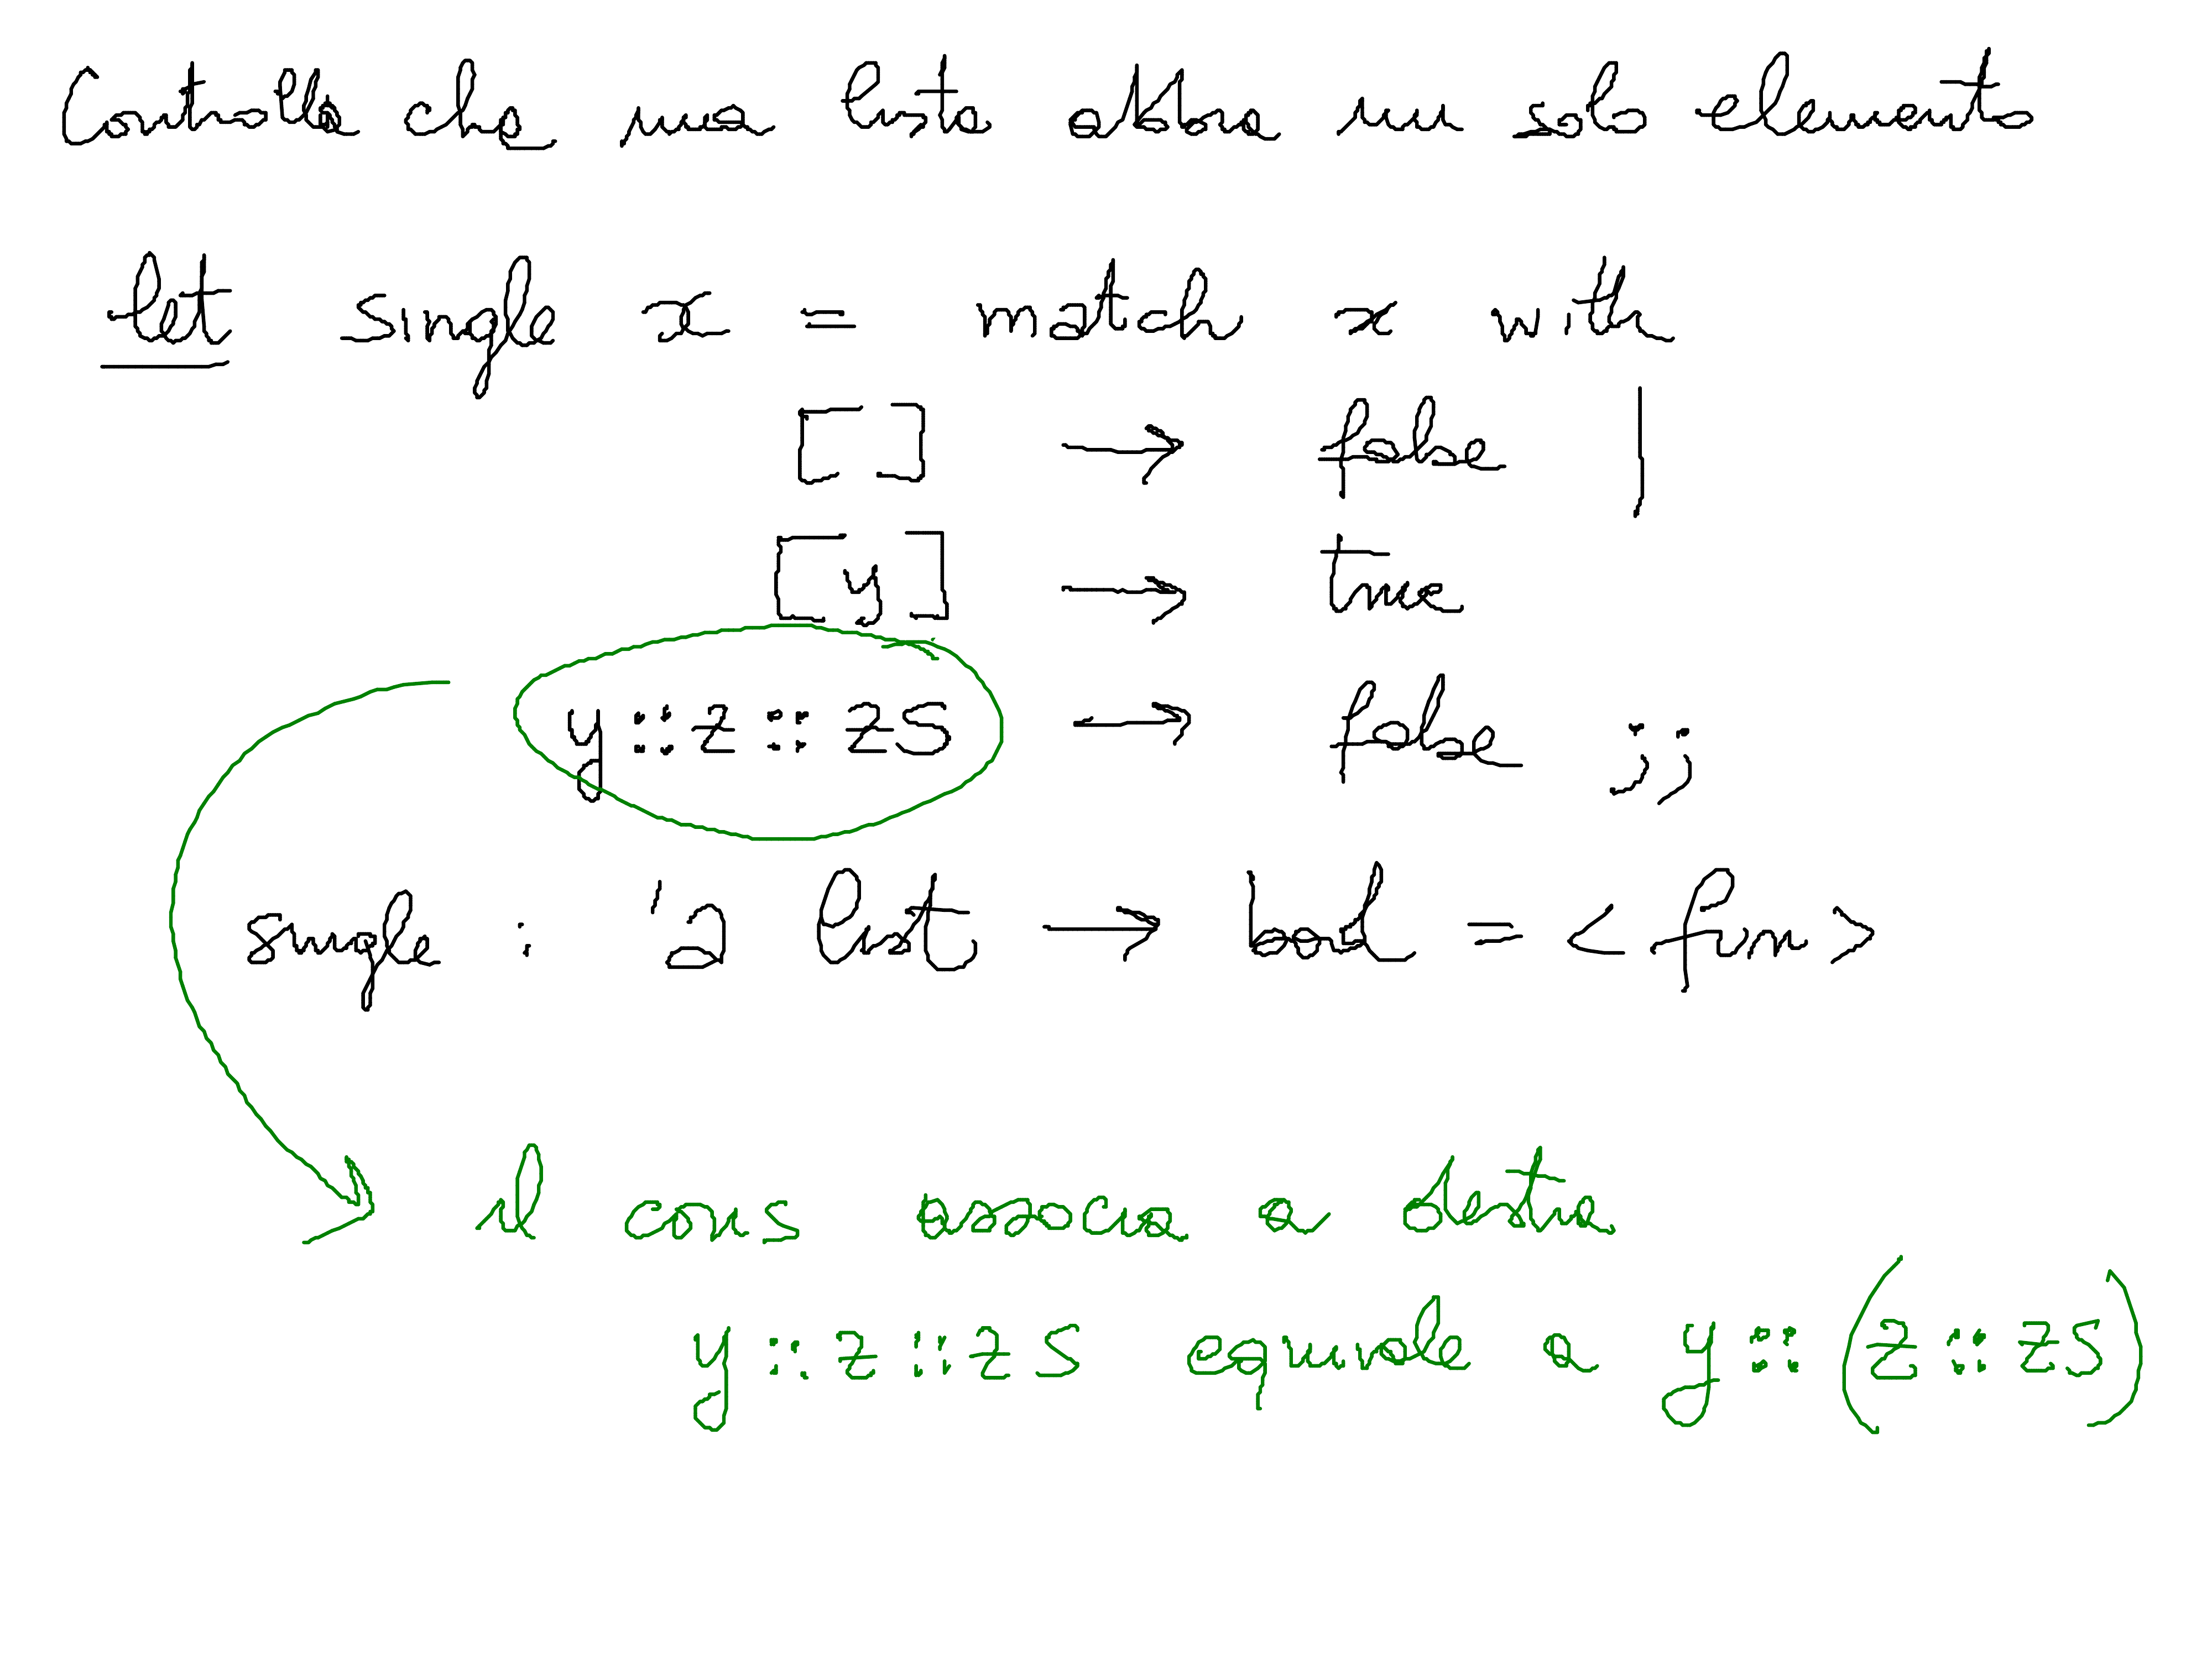 Controlla che una lista abbia un solo elemento
let single x = match x with
[ ] → false |
[y] → true
y :: z :: zs → false ;;
single : 'a list → bool = <fun>
Il cons associa a destra
y :: z :: zs equivale a y :: (z :: zs)